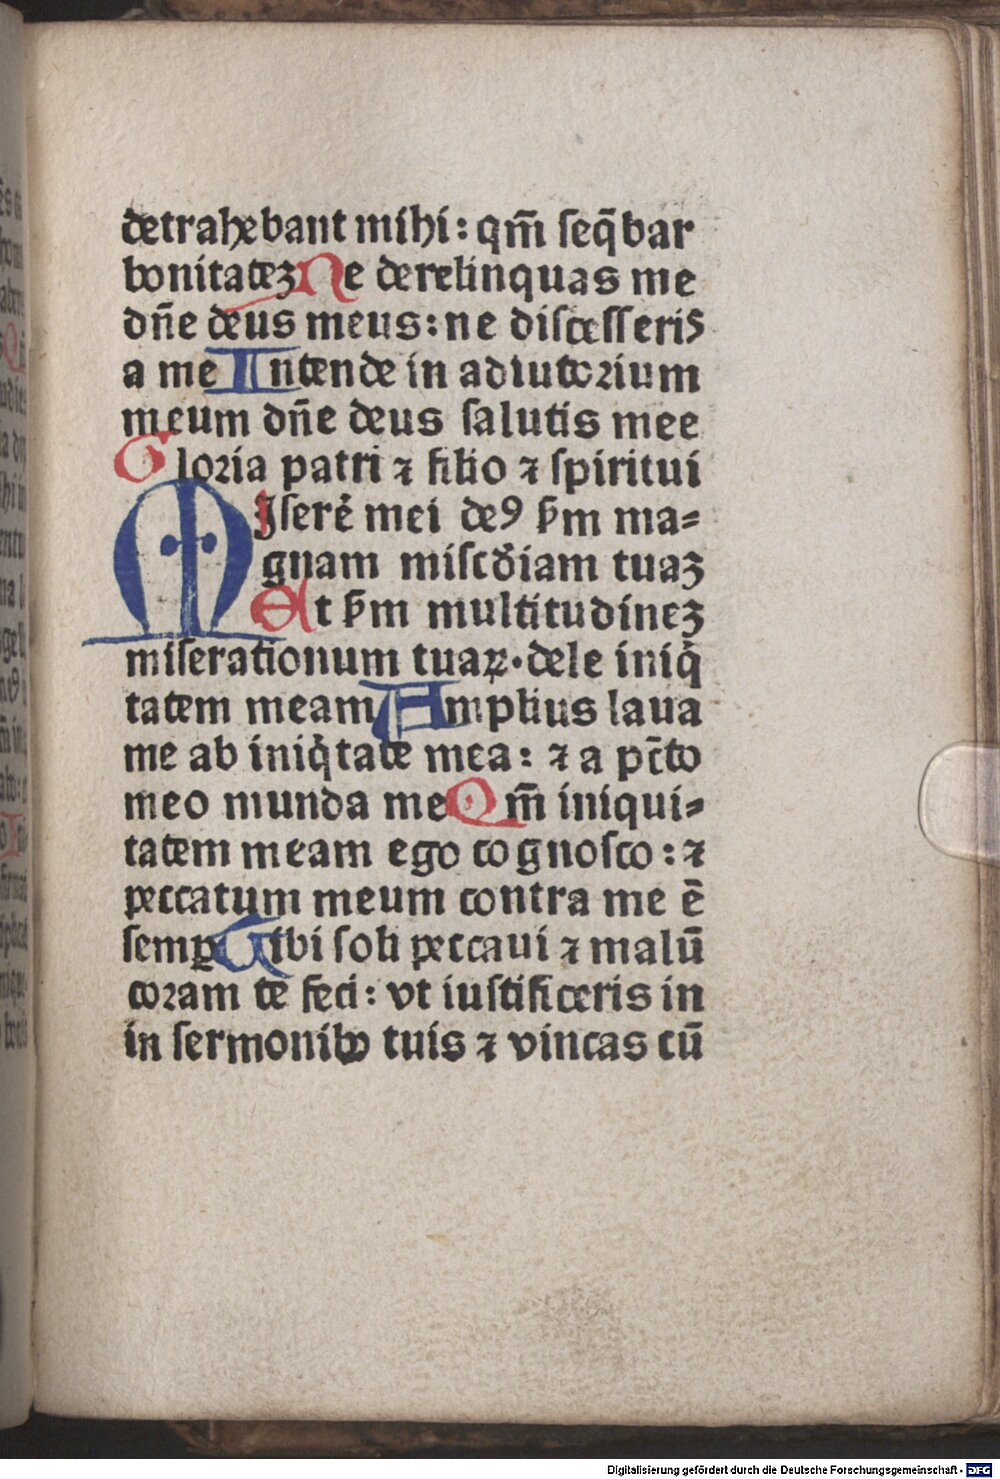 detrahebant mihi: qm̄ seq̄bar
bonitateꝫ Ne derelinquas me
dn̄e deus meus: ne discesseris
a me Intende in adiutorium
meum dn̄e deus salutis mee
Gloria patri ⁊ filio ⁊ spiritui
MIsere᷒ mei deꝰ ẜm ma=
gnam misc̄diam tuaꝫ
Et ẜm multitudineꝫ
miserationum tuaꝝ· dele iniq̇
tatem meam Amplius laua
me ab iniq̇tate mea: ⁊ a pc̄to
meo munda me Qm̄ iniqui=
tatem meam ego cognosco: ⁊
peccatum meum contra me ē
semꝑ Tibi soli peccaui ⁊ malū
coram te feci: vt iustificeris in
in sermonibꝰ tuis ⁊ vincas cū
Digitalisierung gefördert durch die Deutsche Forschungsgemeinschaft - DFG